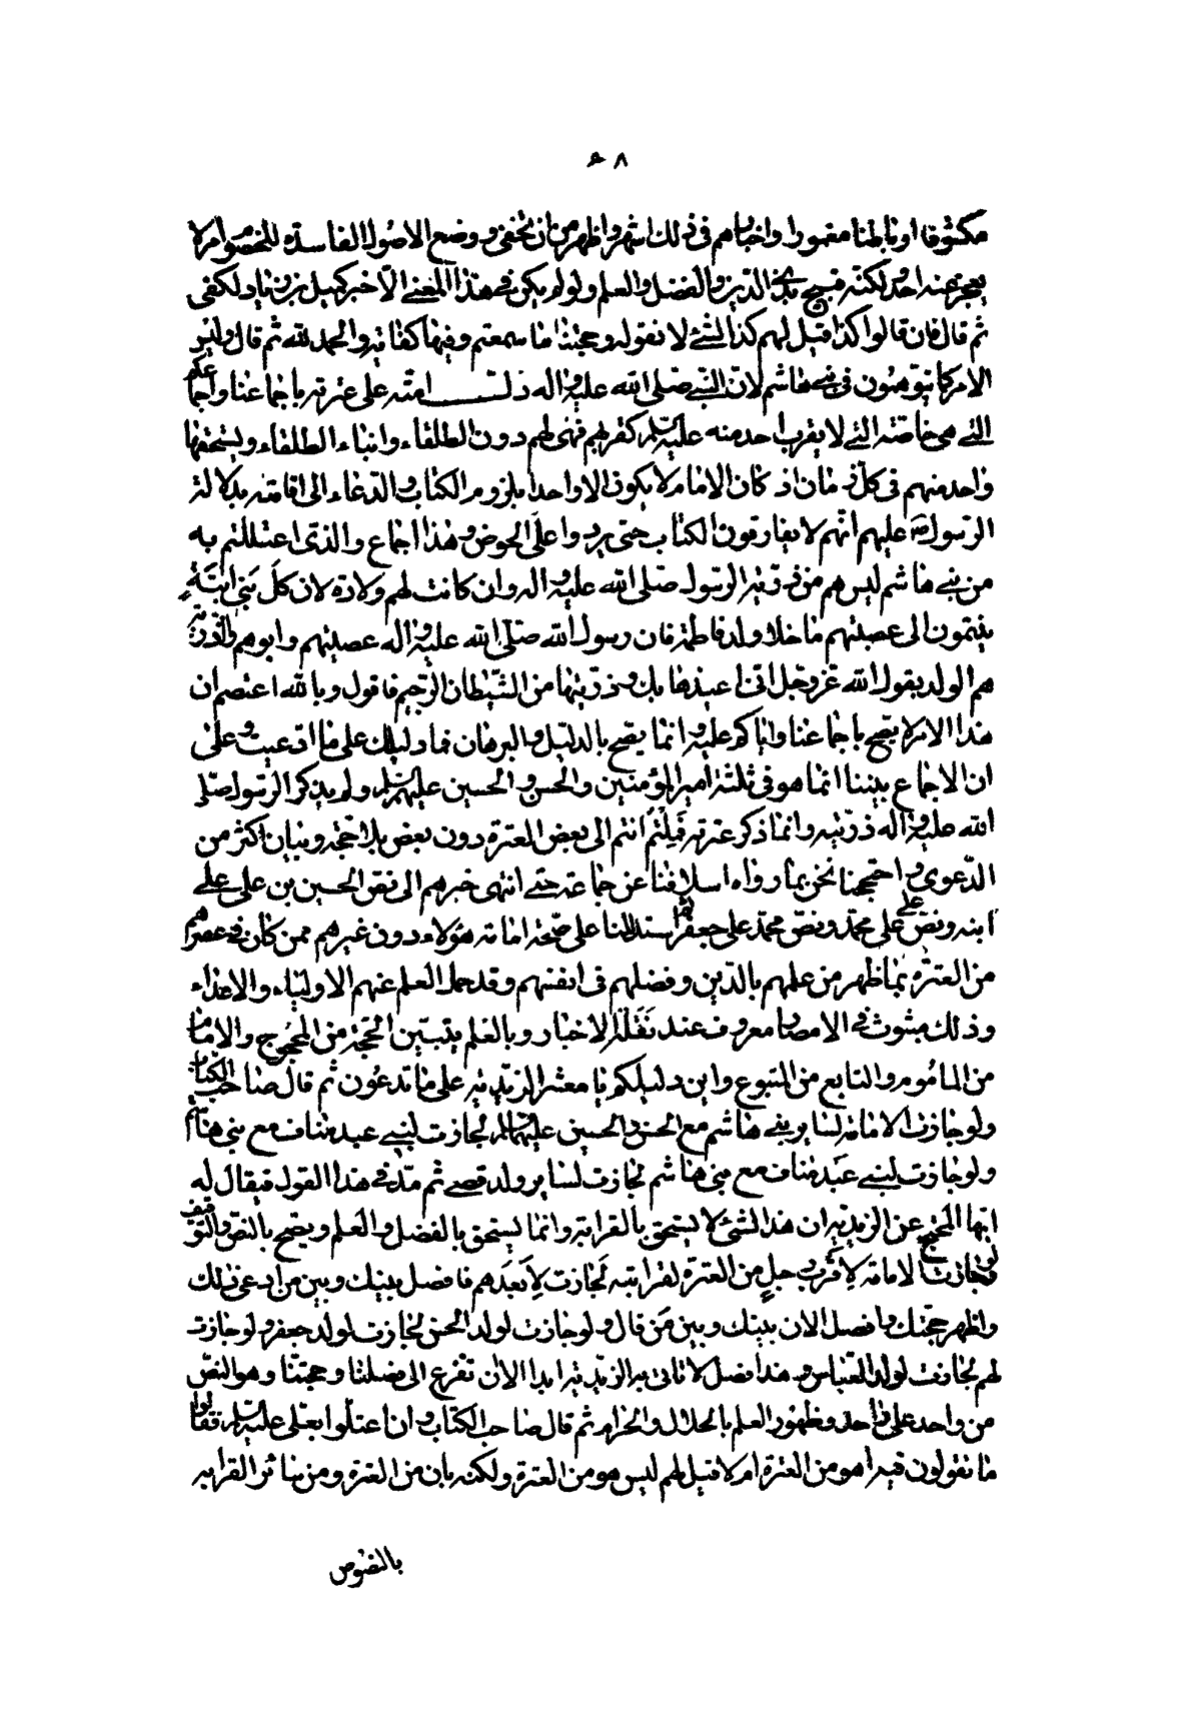 ٦٨
مكشوفا او باطنا مغمورا واخبارهم فى ذلك اشهر واظهر من ان تخفى و وضع الاصول الفاسدة للخصوم امر لا
يعجز عنه احد لكنه قبيح بذى الدين والفضل والعلم ولو لم يكن فى هذا المعنى الا خبر كميل بن زياد لكفى
ثم قال فان قالوا كذا قيل لهم كذا لشئ لا نقوله وحجتنا ما سمعتم وفيها كفاية والحمد لله ثم قال وليس
الامر كما تتوهمون فى بنى هاشم لان النبى صلى الله عليه واله دل امته على عترته باجماعنا واجماعكم
التى هى خاصته التى لا يقرب احد منه عليه السلم كقربهم فهى لهم دون الطلقاء وابناء الطلقاء ويستحقها
واحد منهم فى كل زمان اذ كان الامام لا يكون الا واحدا بلزوم الكتاب والدعاء الى اقامته بدلالة
الرسول ص عليهم انهم لا يفارقون الكتاب حتى يردوا على الحوض وهذا اجماع والذى اعتللتم به
من بنى هاشم ليس هم من ذرية الرسول صلى الله عليه واله وان كانت لهم ولادة لان كل بنى ابنة
ينتمون الى عصبتهم ما خلا ولد فاطمة فان رسول الله صلى الله عليه واله عصبتهم وابوهم والذرية
هم الولد بقول الله عز وجل انى اعيذها بك وذريتها من الشيطان الرجيم فاقول وبالله اعتصم ان
هذا الامر لا يصح باجماعنا واياكم عليه وانما يصح بالدليل والبرهان فما دليلك على ما ادعيت وعلى
ان الاجماع بيننا انما هو فى ثلثة امير المؤمنين والحسن والحسين عليهم السلم ولم يذكر الرسول صلى
الله عليه واله ذريته وانما ذكر عترته فملتم انتم الى بعض العترة دون بعض بلا حجة وبيان اكثر من
الدعوى واحتججنا نحن بما رواه اسلافنا عن جماعة حتى انتهى خبرهم الى نص الحسين بن على على
ابنه ونص على على محمد ونص محمد على جعفر ثم استدللنا على صحة امامة هؤلاء دون غيرهم ممن كان فى عصرهم
من العترة بما ظهر من علمهم بالدين وفضلهم فى انفسهم وقد حمل العلم عنهم الاولياء والاعداء
وذلك مبثوث فى الامصار معروف عند نقلة الاخبار وبالعلم يتبين الحجة من المحجوج والامام
من الماموم والتابع من المتبوع واين دليلكم يا معشر الزيدية على ما تدعون ثم قال صاحب الكتاب
ولو جازت الامامة لسائر بنى هاشم مع الحسن والحسين عليهما السلم لجازت لبنى عبد مناف مع بنى هاشم
ولو جازت لبنى عبد مناف مع بنى هاشم لجازت لسائر ولد قصى ثم مد فى هذا القول فيقال له
ايها المحتج عن الزيدية ان هذا لشئ لا يستحق بالقرابة وانما يستحق بالفضل والعلم ويصح بالنص والتوقيف
فلو جازت الامامة لاقرب رجل من العترة لقرابته لجازت لابعدهم فافصل بينك وبين من ادعى ذلك
واظهر حجتك وافصل الان بينك وبين من قال ولو جازت لولد الحسن لجازت لولد جعفر ولو جازت
لهم لجازت لولد العباس وهذا فصل لا تاتى به الزيدية ابدا الا ان تفزع الى فصلنا وحجتنا وهو النص
من واحد على واحد وظهور العلم بالحلال والحرام ثم قال صاحب الكتاب وان اعتلوا بعلى عليه السلم فقالوا
ما تقولون فيه اهو من العترة ام لا قيل لهم ليس هو من العترة ولكنه بان من العترة ومن سائر القرابه
بالنصوص